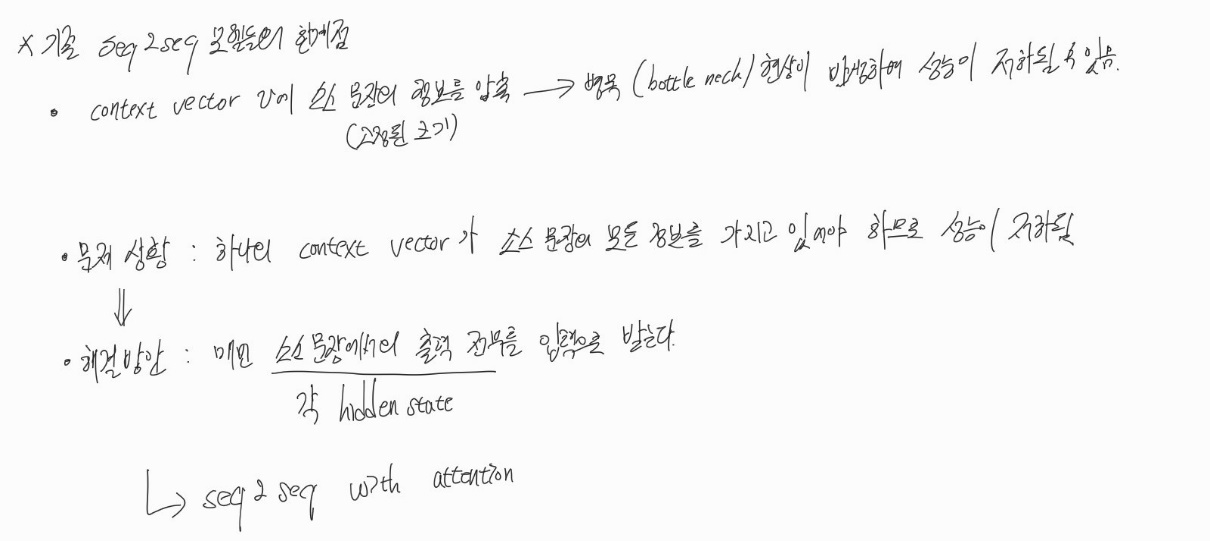 * 기존 seq2seq 모델들의 한계점
• context vector v에 소스 문장의 정보를 압축 → 병목 (bottle neck) 현상이 발생하여 성능이 저하될 수 있음.
(고정된 크기)
• 문제 상황 : 하나의 context vector가 소스 문장의 모든 정보를 가지고 있어야 하므로 성능이 저하됨
⇓
• 해결 방안 : 매번 소스 문장에서의 출력 전부를 입력으로 받는다.
각 hidden state
↳ seq2seq with attention